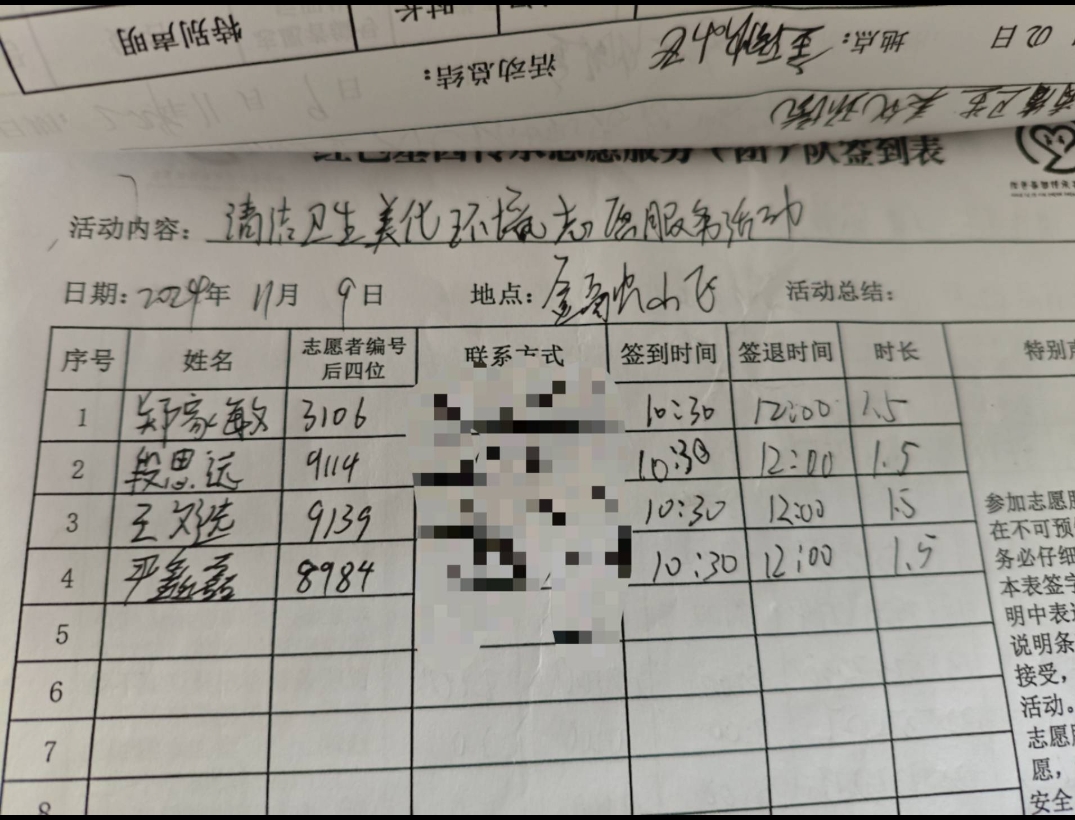 特别声明
时长
活动总结：
地点：
02日
美化环境
红色基因传承志愿服务（团）队签到表
活动内容：清洁卫生美化环境志愿服务活动
日期：2024年 11月 9日 地点： 活动总结：
序号 姓名 志愿者编号后四位 联系方式 签到时间 签退时间 时长 特别声
1 郑家敏 3106 10:30 12:00 1.5
2 段思远 9114 10:30 12:00 1.5
3 王文浩 9139 10:30 12:00 1.5
4 严鑫磊 8984 10:30 12:00 1.5
5
6
7
8
参加志愿服
在不可预
务必仔细
本表签字
明中表述
说明条
接受，
活动。
志愿服
愿，
安全